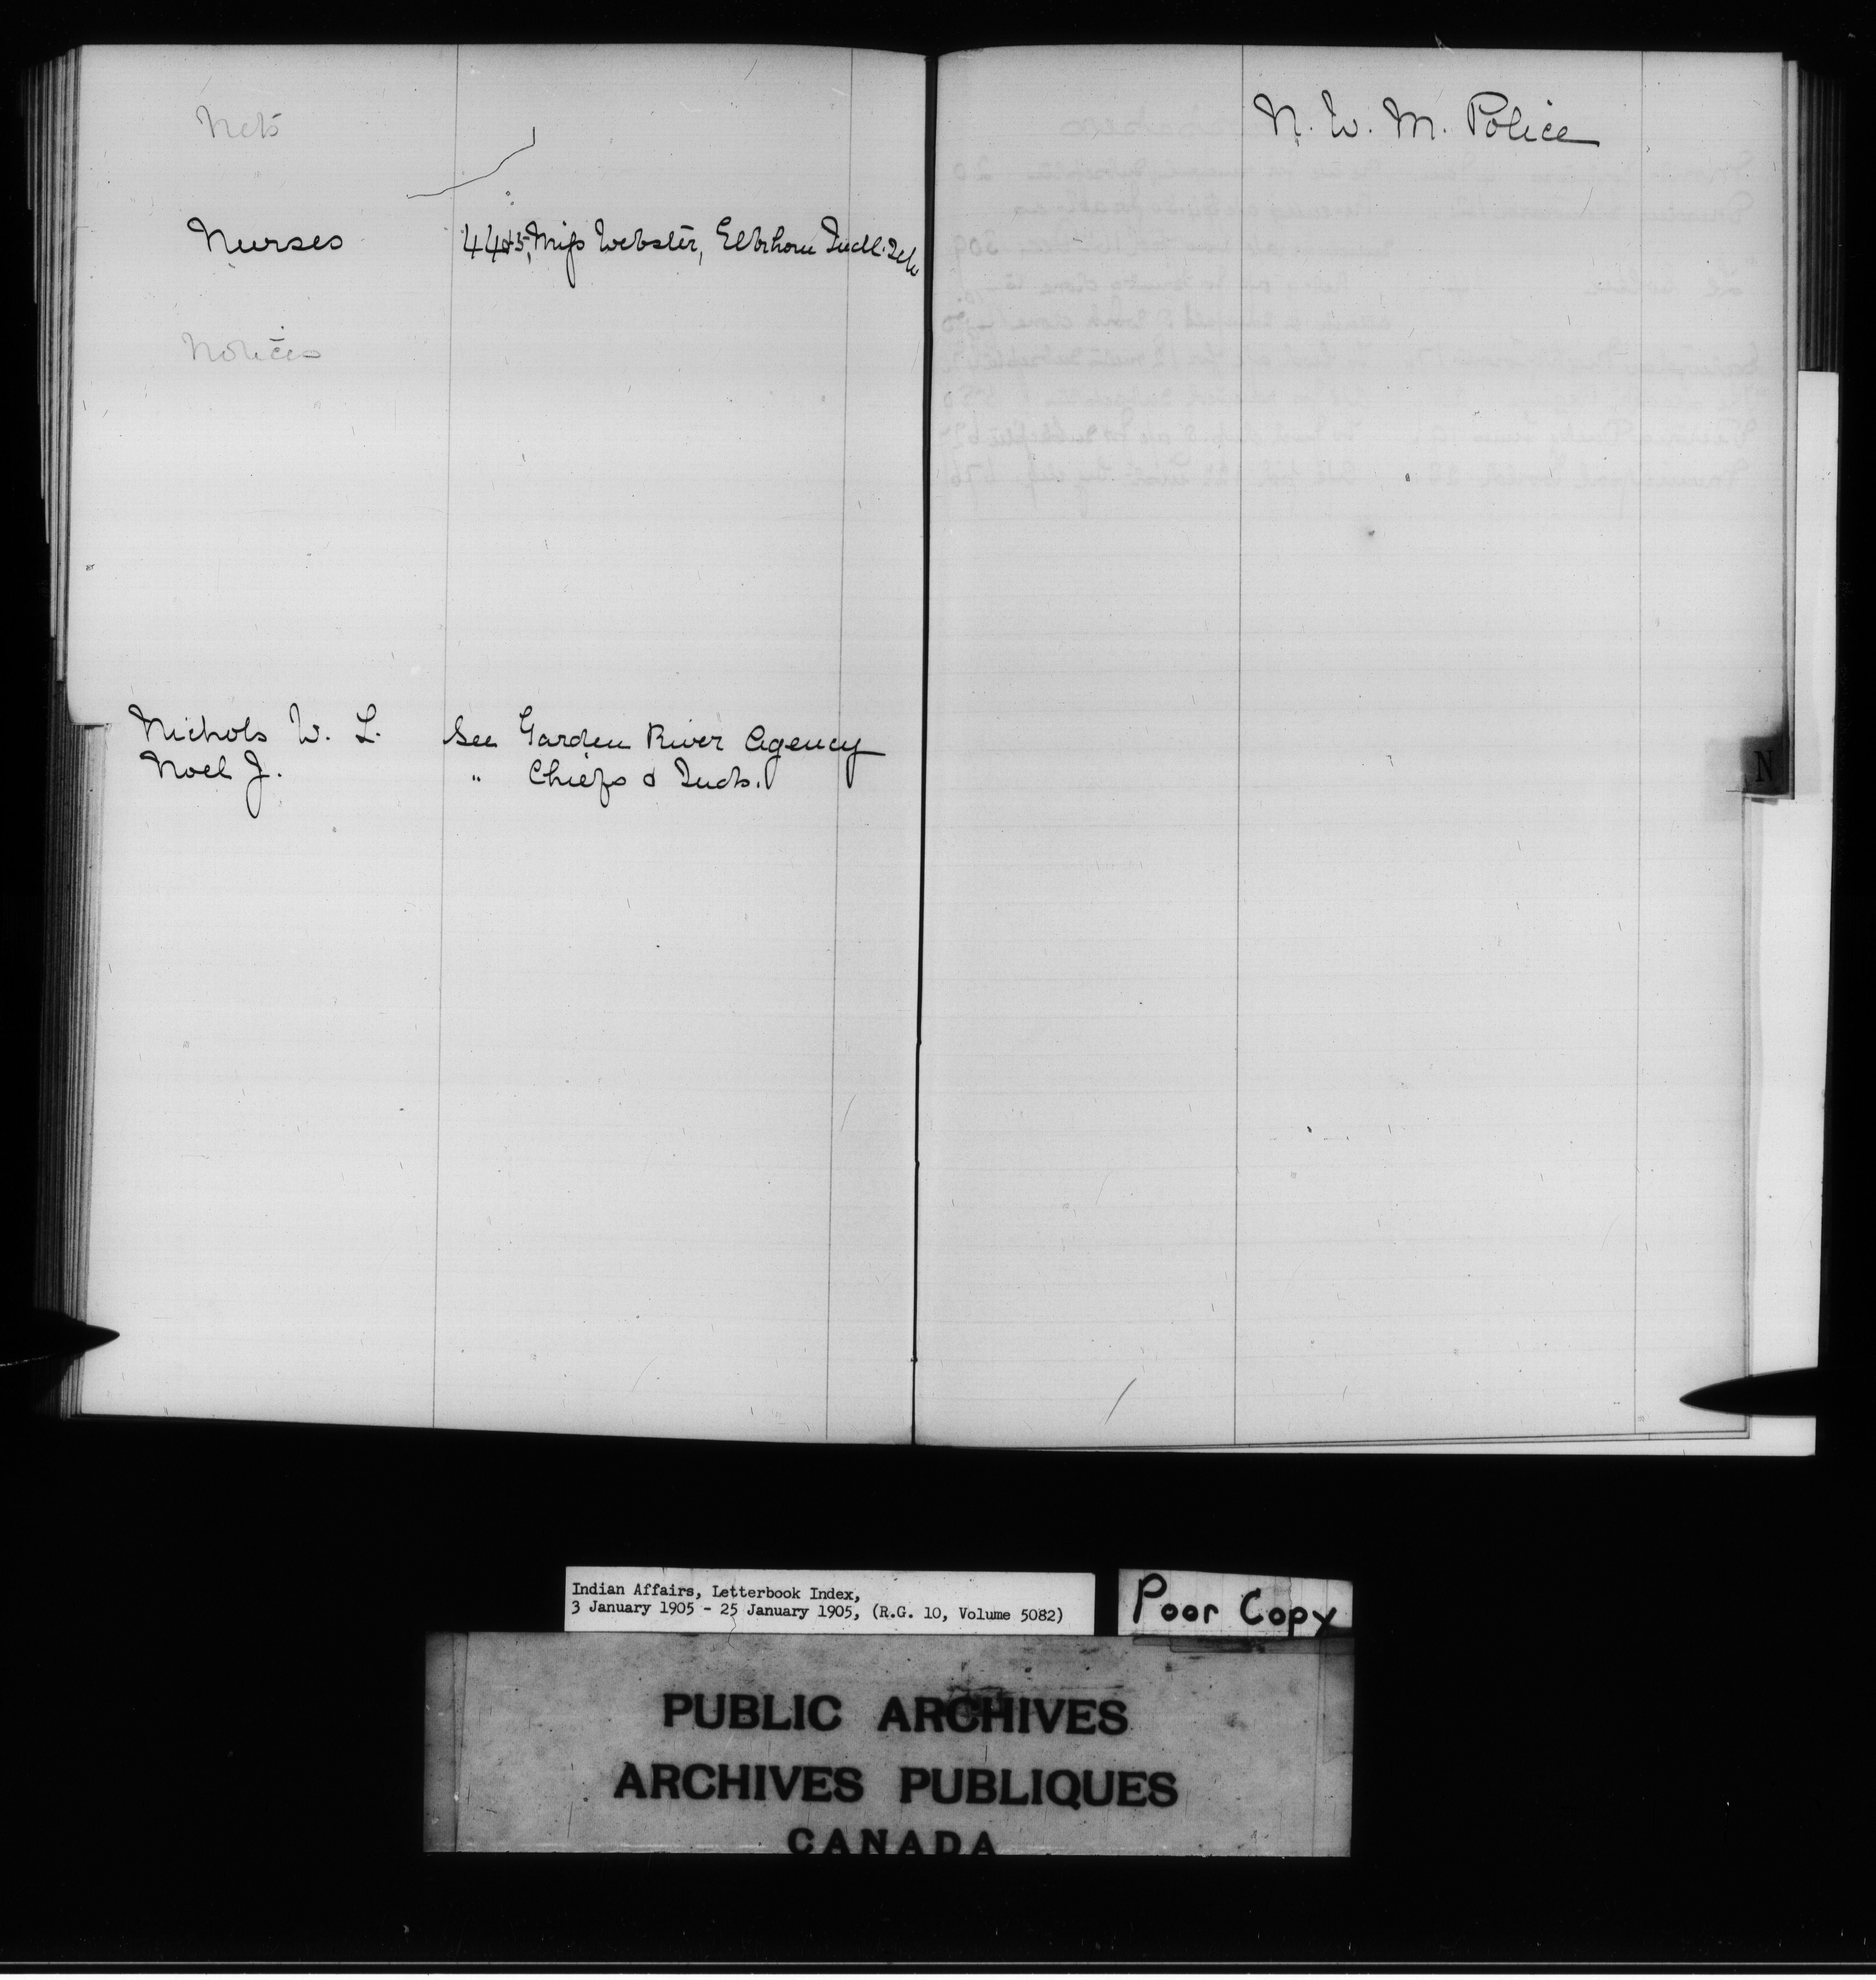 Nets
Nurses 445, Miss Webster, Elkhorn Indl. Sch
Notices
Nichols W. L. See Garden River Agency
Noel J. " Chiefs & Inds.
N. W. M. Police
N
Indian Affairs, Letterbook Index,
3 January 1905 - 25 January 1905, (R.G. 10, Volume 5082)
Poor Copy
PUBLIC ARCHIVES
ARCHIVES PUBLIQUES
CANADA